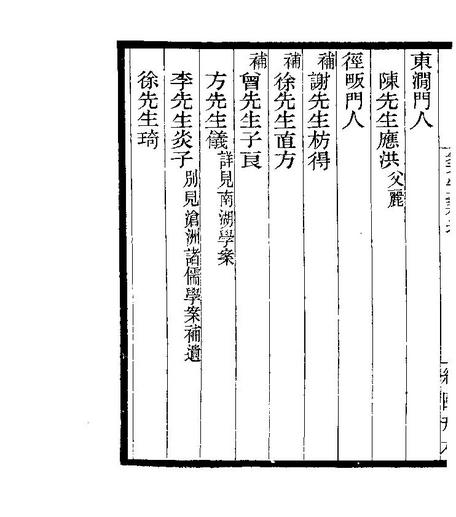 東澗門人
陳先生應洪父麗
徑畈門人
補謝先生枋得
補徐先生直方
補曾先生子良
方先生儀詳見南湖學案
李先生炎子別見滄洲諸儒學案補遺
徐先生琦